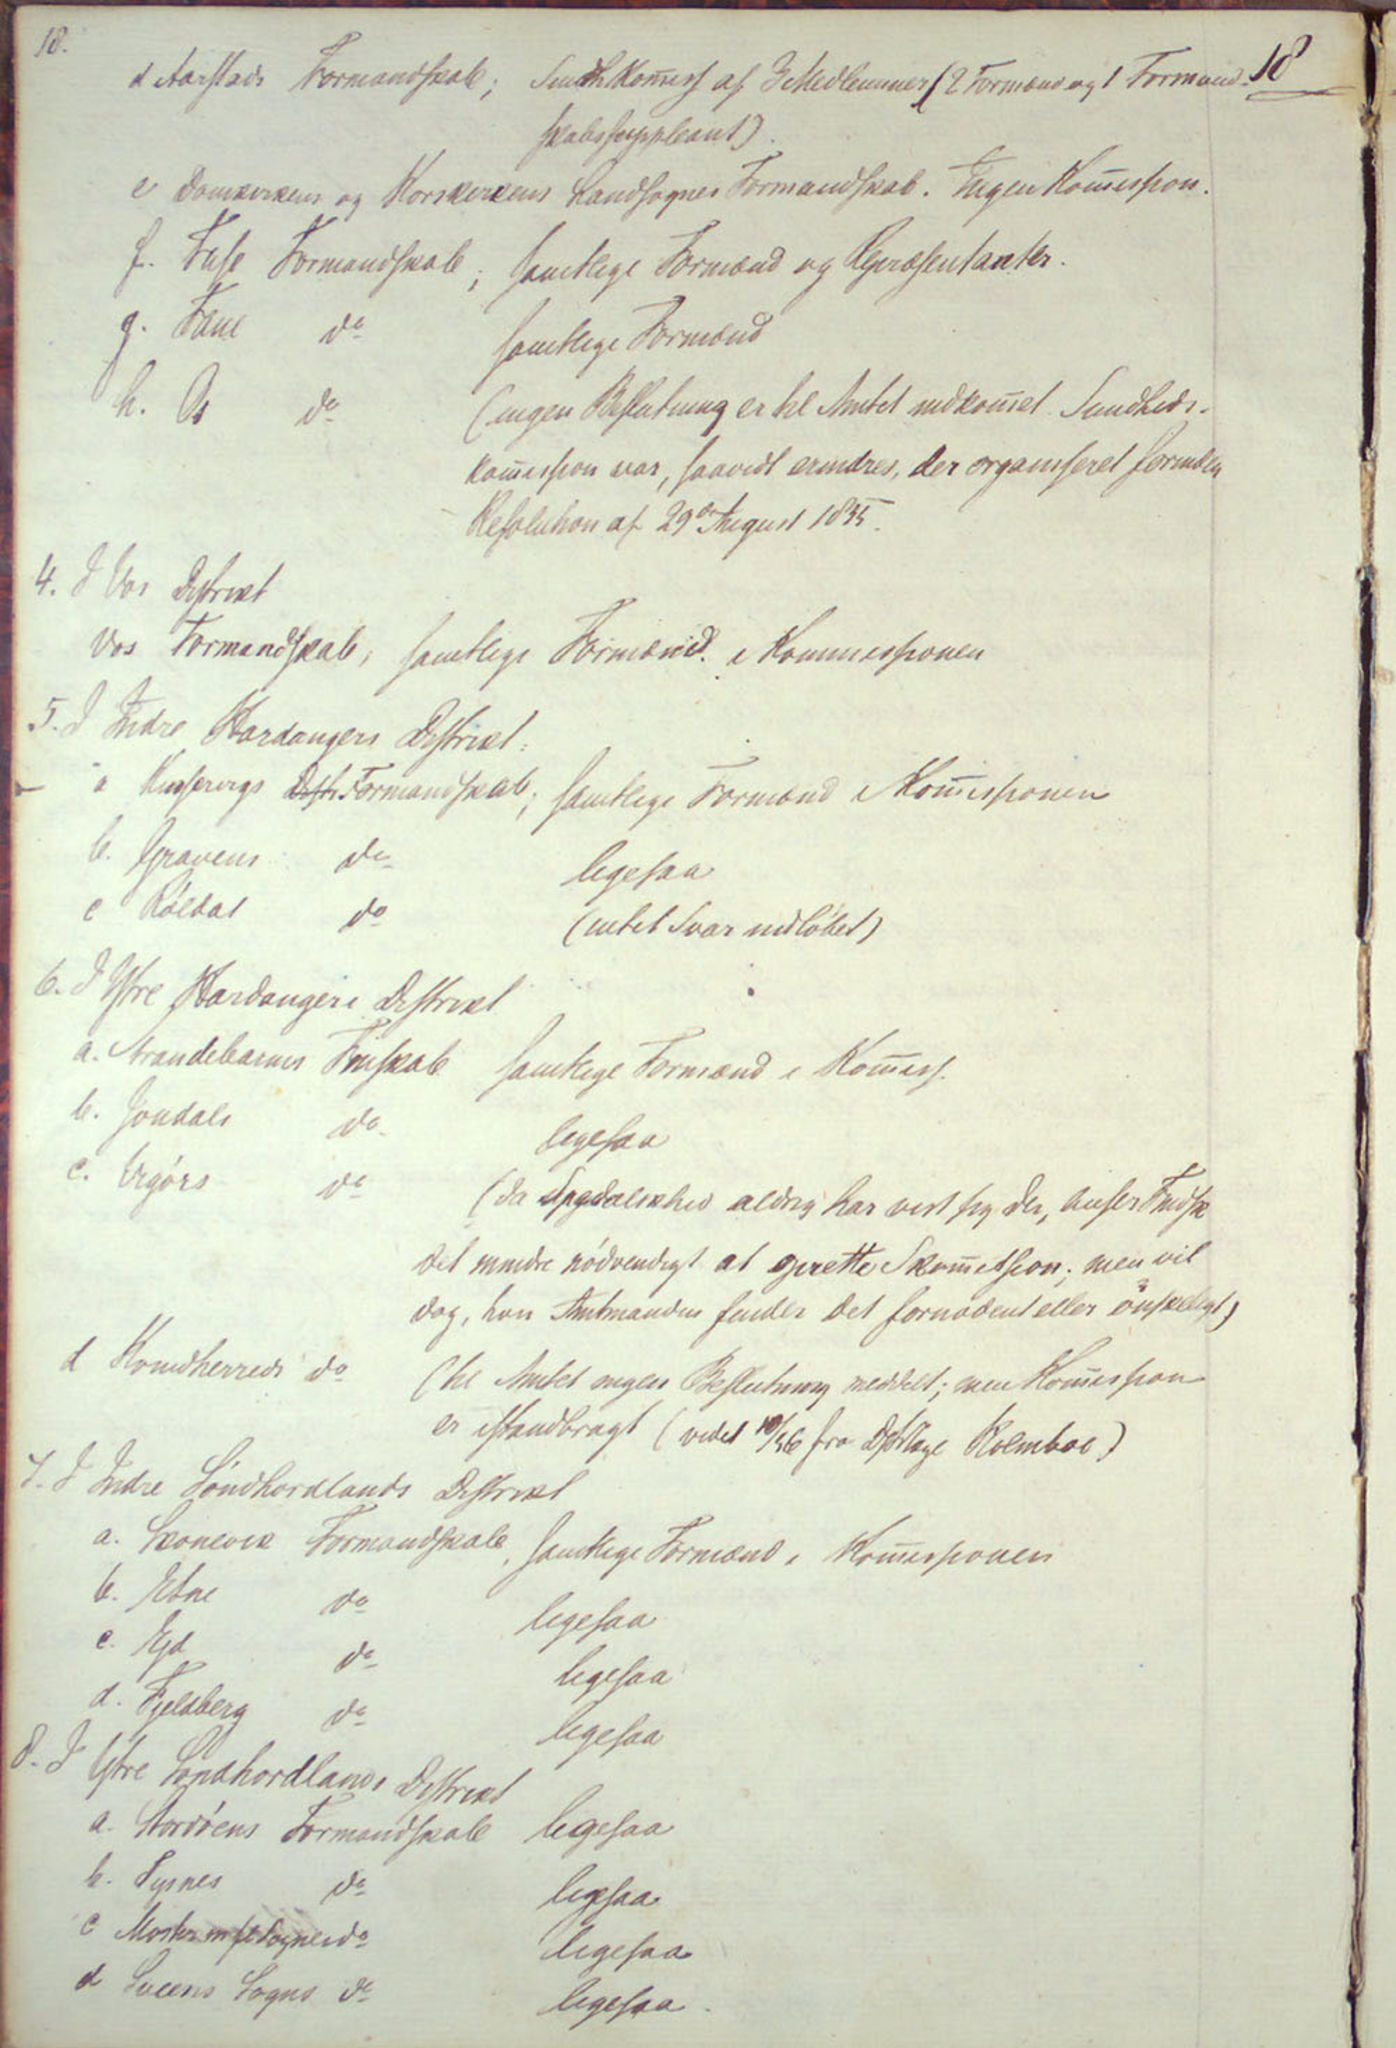 18.
18
d Aarstads Formandskab; Sundhkom̅iss af 3 Medlemmer (2 Formænd og 1 Formand-
skabssuppleant).
e Domkirkens og Korskirkens Landsognes Formandskab. Ingen Kom̅ission.
f. Fuse Formandskab; samtlige Formænd og Repræsentanter.
g. Fane do samtlige Formænd
h. Os do (ingen Beslutning er til Amtet indkom̅et. Sundheds-
kom̅ission var, saavidt erindres, der organiseret
Resolution af 29de August 1835.
4. I Vos Distrikt
Vos Formandskab, samtlige Formænd i Kommissionen
5. I Indre Hardangers Distrikt:
a Kinservigs Distr. Formandskab; samtlige Formænd i Kom̅issionen
b. Gravens do ligesaa
c Røldal do (intet Svar indløbet)
6. I Ytre Hardangers Distrikt
a. Strandebarms Fmskab samtlige Formænd i Kom̅iss.
b. Jondals do ligesaa
c. Vigørs do (da Spedalskhed aldrig har vist sig der, anser Fmdsk
det mindre nødvendigt at oprette Skom̅ission; men vil
dog, hvis Amtmanden finder det fornødent eller ønskeligt)
d Kvindherreds do (til Amtet ingen Beslutning meddelt; men Kom̅ission
er istandbragt ( fra Distrlæge Kolmboe)
7. I Indre Søndhordlands Distrikt
a. Skonevik Formandskab, samtlige Formænd i Kom̅issionen
b. Etne do ligesaa
c. Eid do ligesaa
d. Fjeldberg do ligesaa
8. I Ytre Søndhordlands Distrikt
a. Stordøens Formandskab ligesaa
b. Tysnes do ligesaa
c Moster m fl Sognes do ligesaa
d Sveens Sogns do ligesaa.